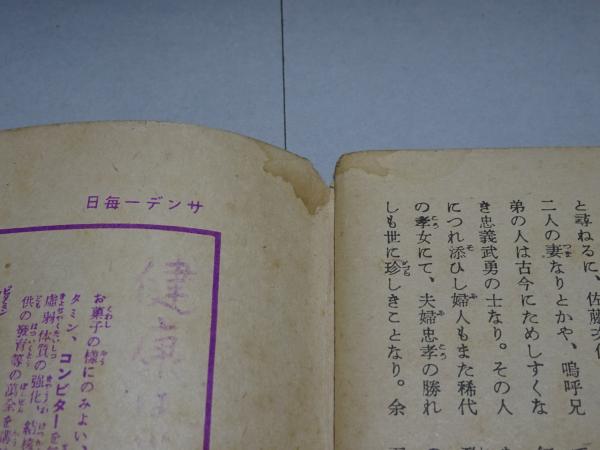 と尋ねるに、佐藤次信
二人の妻なりとかや、嗚呼兄
弟の人は古今にためしすくな
き忠義武勇の士なり。その人
につれ添ひし婦人もまた稀代
の孝女にて、夫婦忠孝の勝れ
しも世に珍しきことなり。余
サンデー毎日
健康は
お菓子の様にのみよい、
タミン、コンビターを
虚弱体質の強化、結核
供の発育等の萬全を